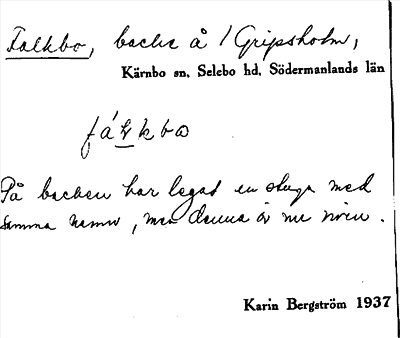 Falkbo, backe å / Gripsholm,
Kärnbo sn, Selebo hd, Södermanlands län
fálkbω
På backen har legat en stuga med
samma namn, men denna är nu riven.
Karin Bergström 1937